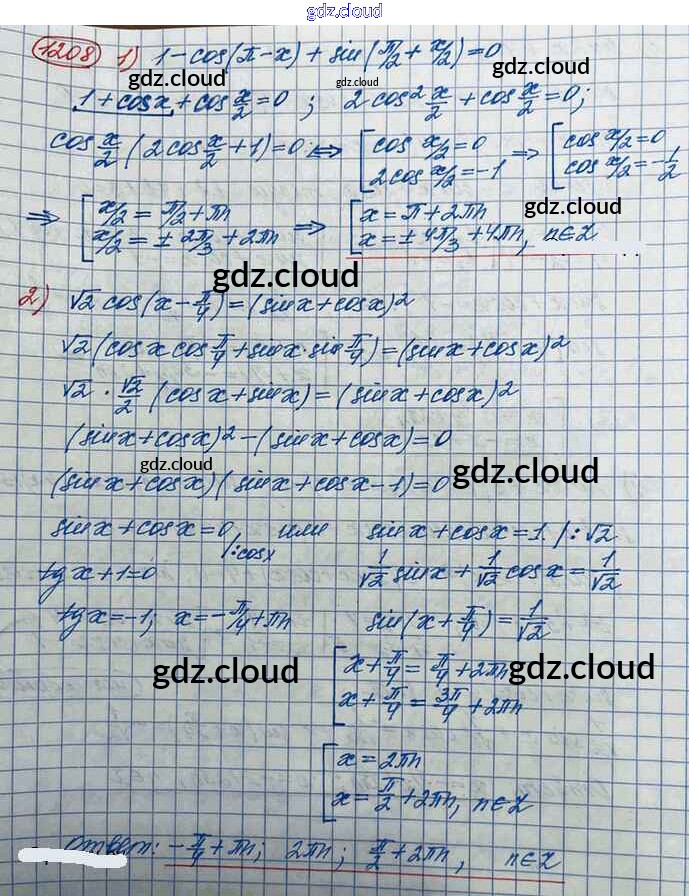 gdz.cloud
1208 1) 1-cos(π-x)+sin(π/2+x/2)=0
gdz.cloud gdz.cloud gdz.cloud
1+cosx+cos x/2=0; 2cos² x/2+cos x/2=0;
cos x/2(2cos x/2+1)=0 ⇔ [cos x/2=0 2cos x/2=-1 ⇒ [cos x/2=0 cos x/2=-1/2
gdz.cloud gdz.cloud
⇒ [x/2=π/2+πn x/2=±2π/3+2πn ⇒ [x=π+2πn x=±4π/3+4πn, n∈Z
gdz.cloud
2) √2 cos(x-π/4)=(sinx+cosx)²
√2(cosx cos π/4+sinx·sin π/4)=(sinx+cosx)²
√2·√2/2(cosx+sinx)=(sinx+cosx)²
(sinx+cosx)²-(sinx+cosx)=0
gdz.cloud gdz.cloud
(sinx+cosx)(sinx+cosx-1)=0
sinx+cosx=0 |:cosx или sinx+cosx=1. |:√2
tgx+1=0 1/√2 sinx+1/√2 cosx=1/√2
tgx=-1; x=-π/4+πn sin(x+π/4)=1/√2
gdz.cloud gdz.cloud
[x+π/4=π/4+2πn
x+π/4=3π/4+2πn
[x=2πn
x=π/2+2πn, n∈Z
gdz.cloud gdz.cloud
Ответ: -π/4+πn; 2πn; π/2+2πn, n∈Z